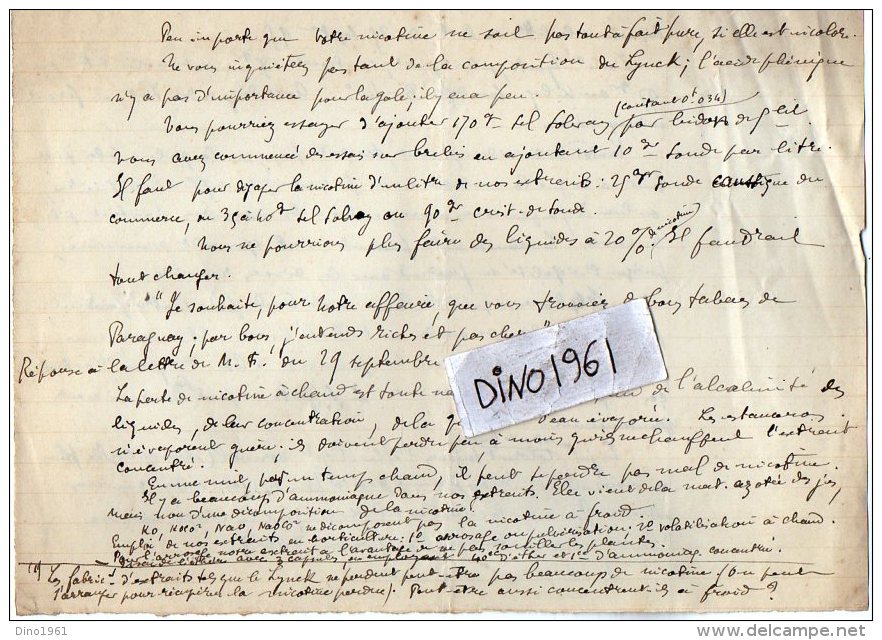 Peu importe que votre nicotine ne soit pas tout à fait pure, si elle est incolore.
Ne vous inquiétez pas tant de la composition du Lynck; l'acide phénique
n'y a pas d'importance pour la gale; il y en a peu.
(contant 0f 034)
Vous pourriez essayer d'ajouter 170gr sel Solvay par bidon de 5 lit.
vous avez commencé des essais sur brebis en ajoutant 10gr soude par litre.
Il faut pour dégager la nicotine d'un litre de nos extraits: 25gr soude caustique du
commerce, ou 35 à 40gr sel Solvay ou 90gr crist. de soude.
Nous ne pourrions plus faire des liquides à 20 % de nicotine. Il faudrait
tout changer.
Je souhaite, pour notre affaire, que vous trouviez de bons tabacs de
Paraguay; par bons, j'entends riches et pas chers
Réponse à la lettre de M. F. du 29 septembre
La perte de nicotine à chaud est toute de l'alcalinité des
liquides, de leur concentration, de la d'eau évaporée. Les estancieros
n'évaporent guère; ils doivent perdre peu, à moins qu'ils ne chauffent l'extrait
concentré.
En une nuit, par un temps chaud, il peut se perdre pas mal de nicotine.
Il y a beaucoup d'ammoniaque dans nos extraits. Elle vient de la mat. azotée des jus,
mais non d'une décomposition de la nicotine.
KO, NaO, ne décomposent pas la nicotine à froid.
Emploi de nos extraits en horticulture: 1º arrosage ou pulvérisation. 2º volatilisation à chaud.
Pour l'arrosage notre extrait a l'avantage de ne pas souiller les plantes.
avec 3 d'éther et 1cc d'ammoniaq concentré.
(1) Les fabric.ns d'extraits tels que le Lynck ne perdent peut-être pas beaucoup de nicotine (on peut
s'arranger pour récupérer la nicotine perdue). Peut-être aussi concentrent-ils à froid?
DINO1961
Dino1961
delcampe.net